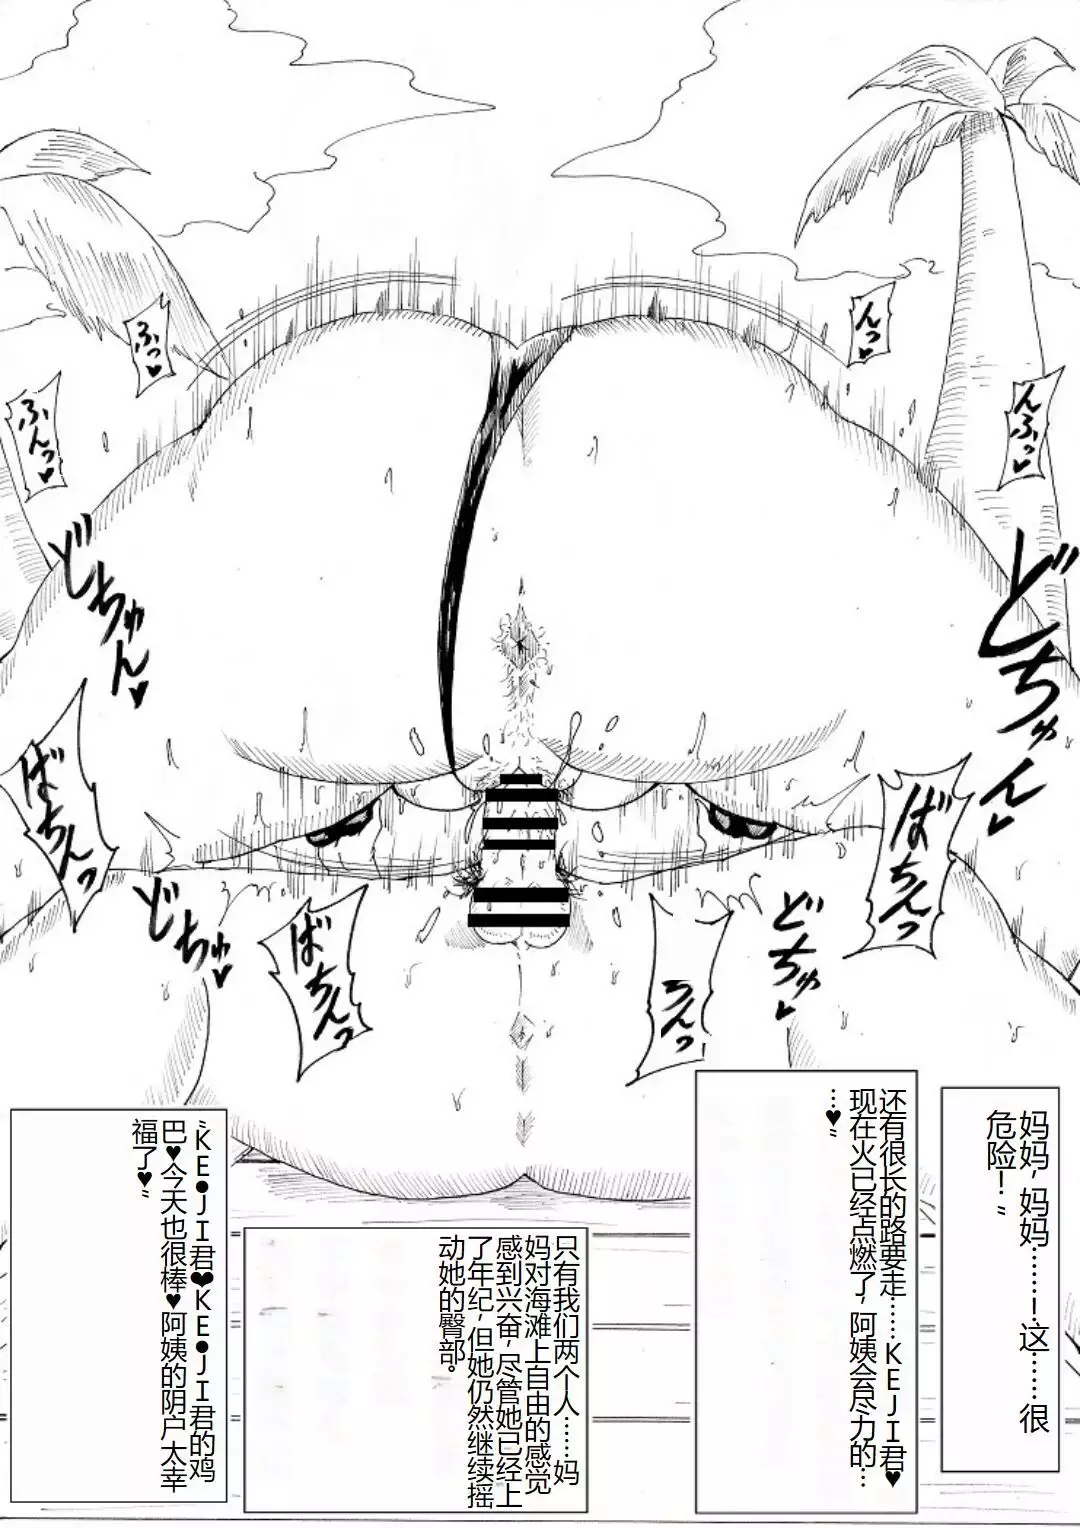 んっ♥
んふっ♥
ふっ♥
ふんっ♥
どちゅん♥
どちゅん♥
ばちんっ
ばちんっ
どちゅっ♥
ちんっ
ばちんっ
どちゅっ♥
妈妈，妈妈……！这……很
危险！〟
还有很长的路要走……KEJI君♥
现在火已经点燃了，阿姨会尽力的…
…♥〟
只有我们两个人……妈
妈对海滩上自由的感觉
感到兴奋，尽管她已经上
了年纪，但她仍然继续摇
动她的臀部。
〝KE●JI君❤KE●JI君的鸡
巴♥今天也很棒♥阿姨的阴户太幸
福了♥〟